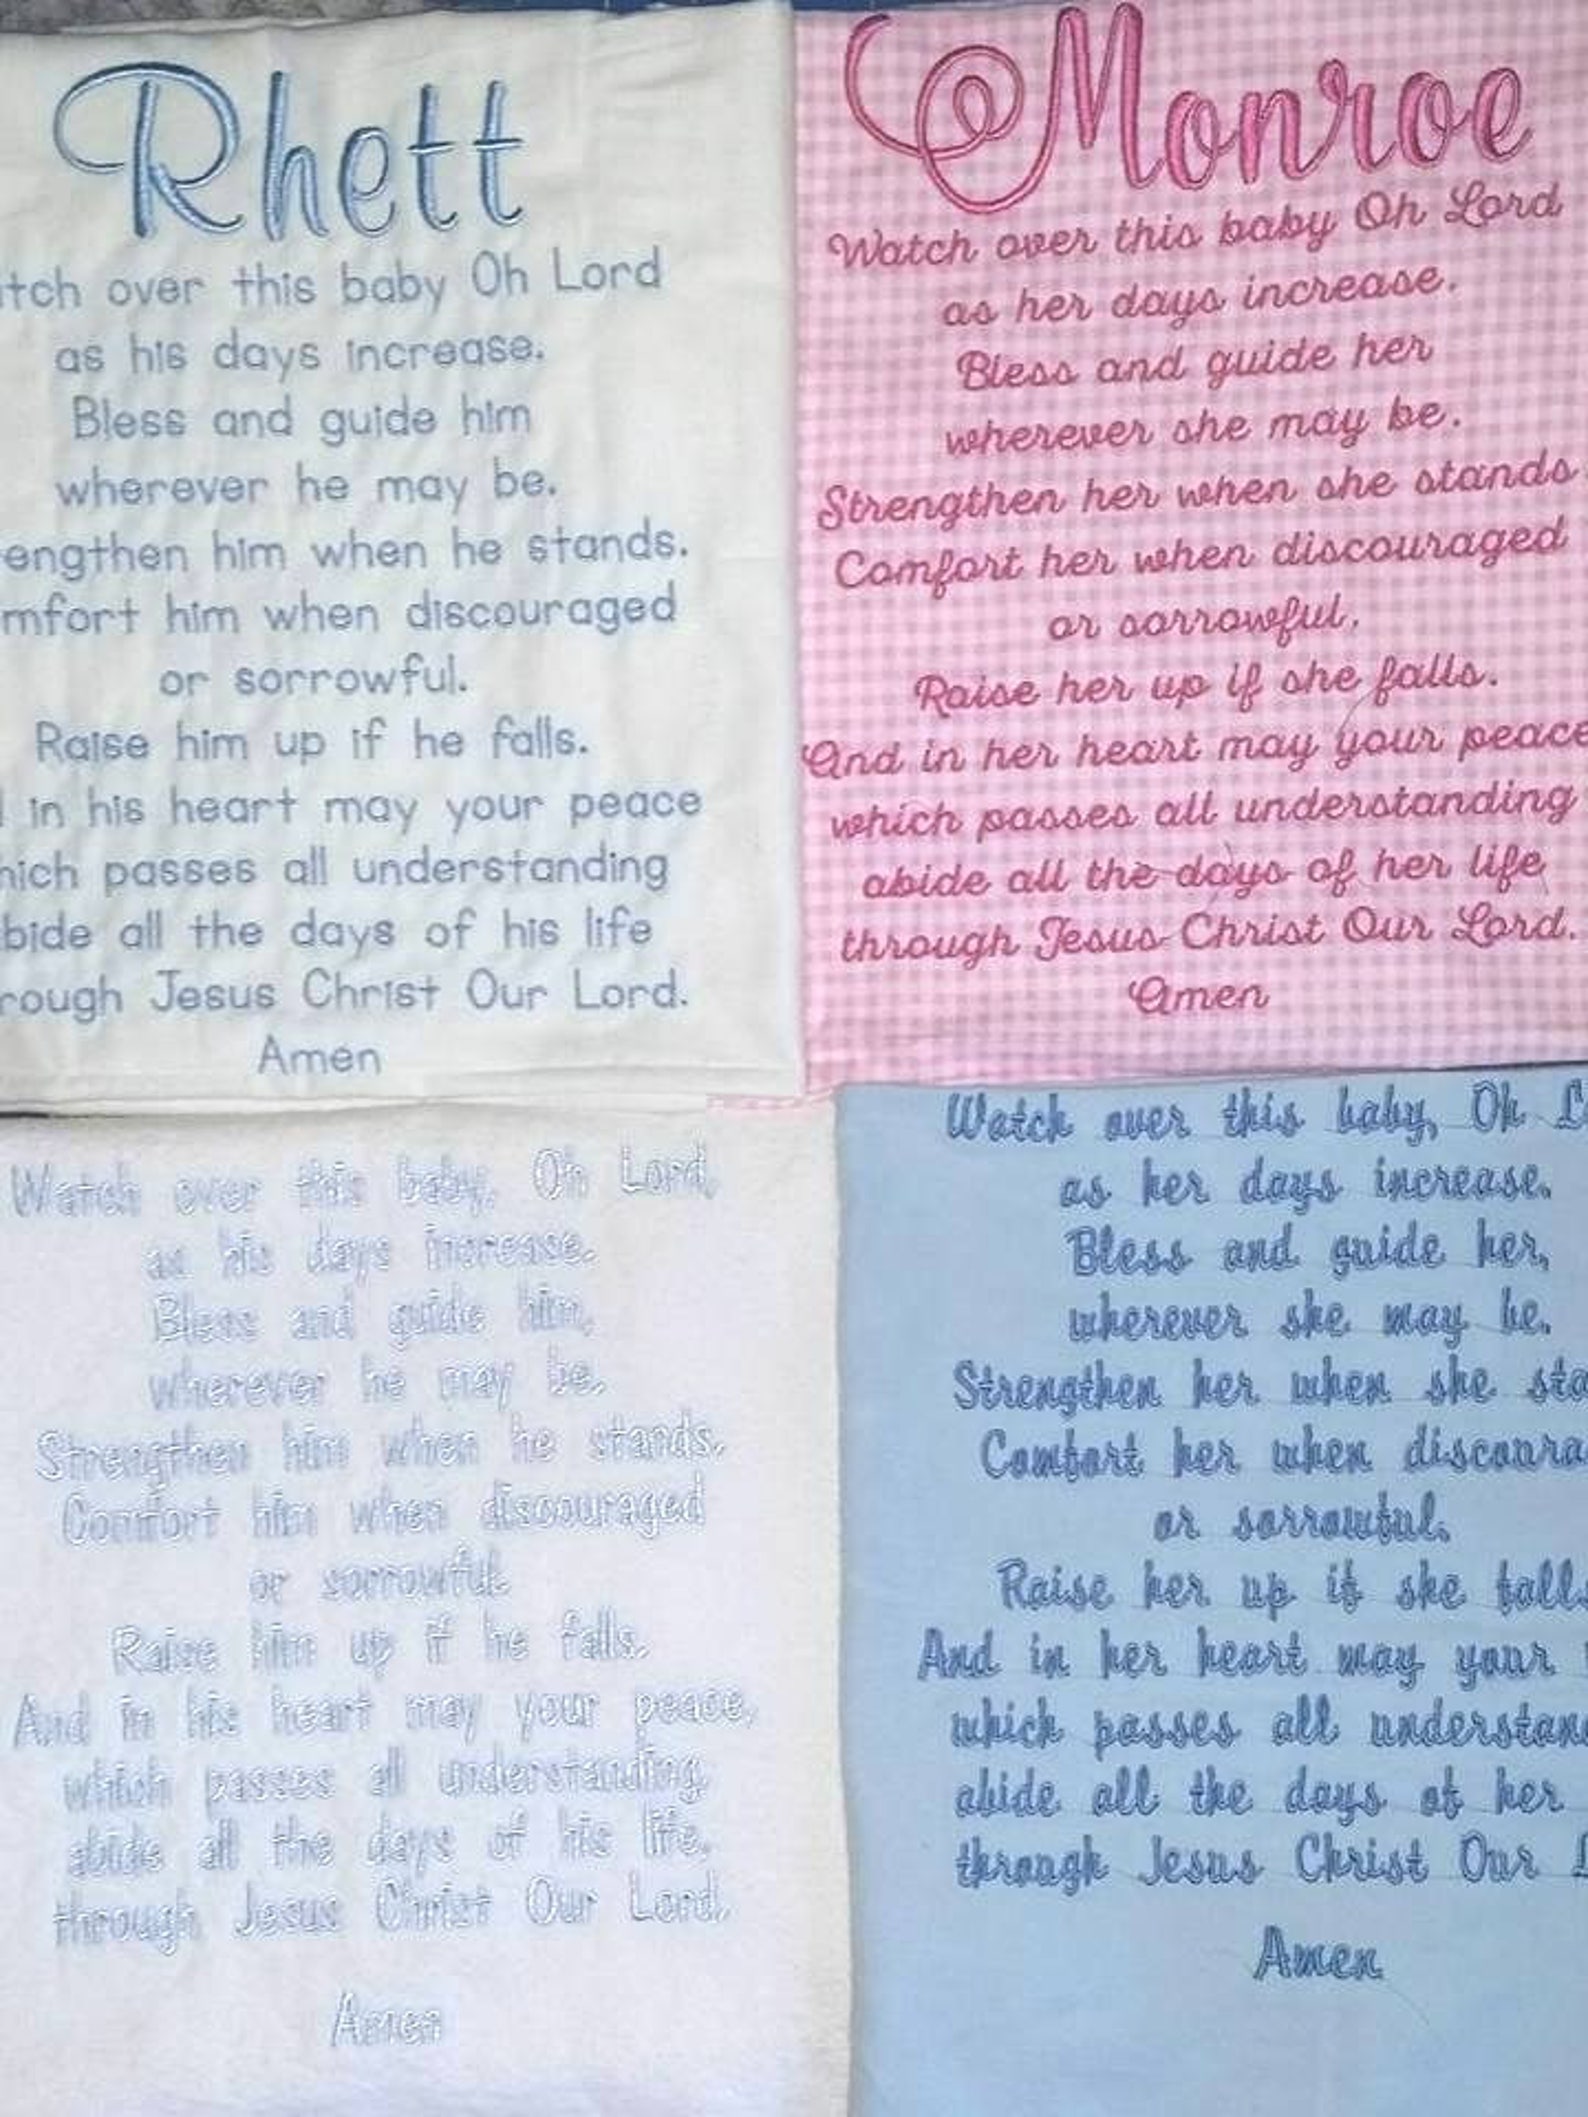 Rhett
tch over this baby Oh Lord
as his days increase.
Bless and guide him
wherever he may be.
engthen him when he stands.
mfort him when discouraged
or sorrowful.
Raise him up if he falls.
in his heart may your peace
hich passes all understanding
bide all the days of his life
rough Jesus Christ Our Lord.
Amen
Monroe
Watch over this baby Oh Lord
as her days increase.
Bless and guide her
wherever she may be.
Strengthen her when she stands
Comfort her when discouraged
or sorrowful.
Raise her up if she falls.
And in her heart may your peace
which passes all understanding
abide all the days of her life
through Jesus Christ Our Lord.
Amen
Watch over this baby, Oh Lord,
as his days increase.
Bless and guide him,
wherever he may be.
Strengthen him when he stands.
Comfort him when discouraged
or sorrowful.
Raise him up if he falls.
And in his heart may your peace,
which passes all understanding,
abide all the days of his life,
through Jesus Christ Our Lord.
Amen
Watch over this baby, Oh L
as her days increase.
Bless and guide her,
wherever she may be.
Strengthen her when she sta
Comfort her when discoura
or sorrowful.
Raise her up if she falls
And in her heart may your
which passes all understan
abide all the days of her
through Jesus Christ Our L
Amen